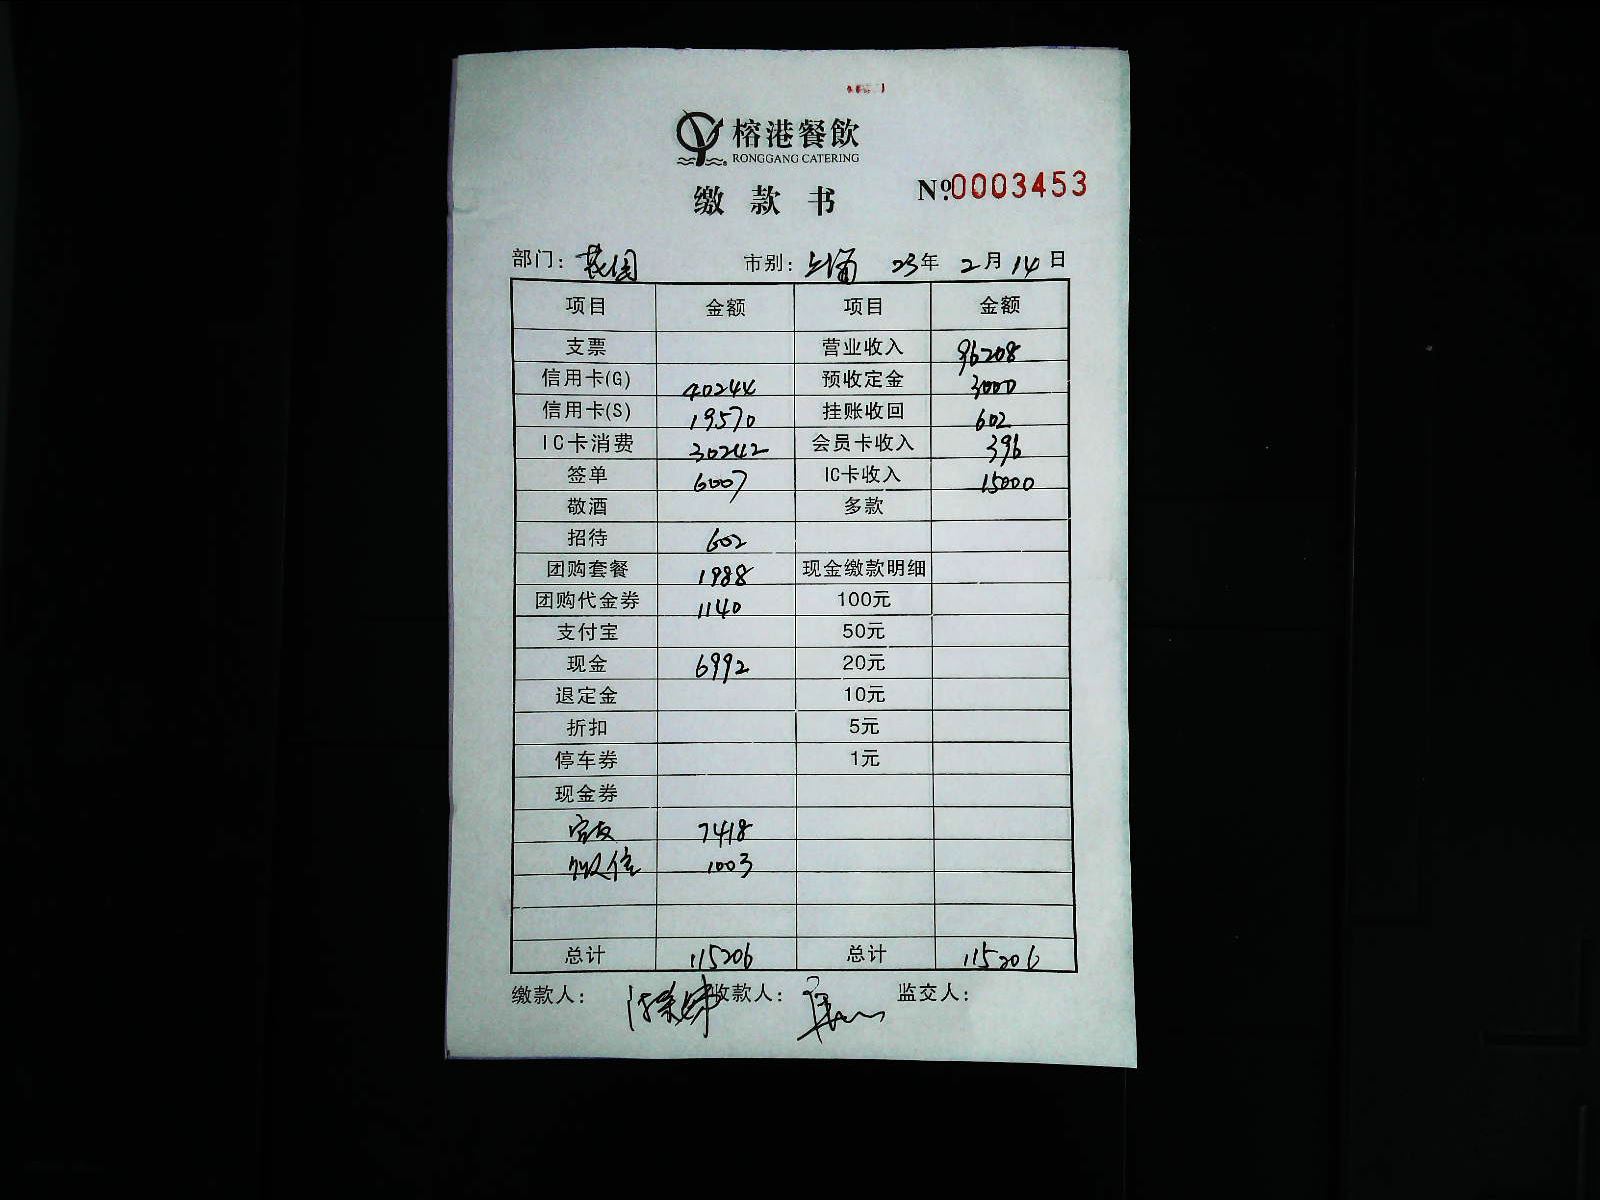 榕港餐飲
RONGGANG CATERING
缴款书
№0003453
部门：花园 市别： 23年 2月14日
项目 金额 项目 金额
支票 营业收入 96208
信用卡(G) 40244 预收定金 3000
信用卡(S) 19570 挂账收回 602
IC卡消费 30242 会员卡收入 396
签单 6007 IC卡收入 15000
敬酒 多款
招待 602
团购套餐 1988 现金缴款明细
团购代金券 1140 100元
支付宝 50元
现金 6992 20元
退定金 10元
折扣 5元
停车券 1元
现金券
7418
微信 1003
总计 115206 总计 115206
缴款人： 收款人： 监交人：